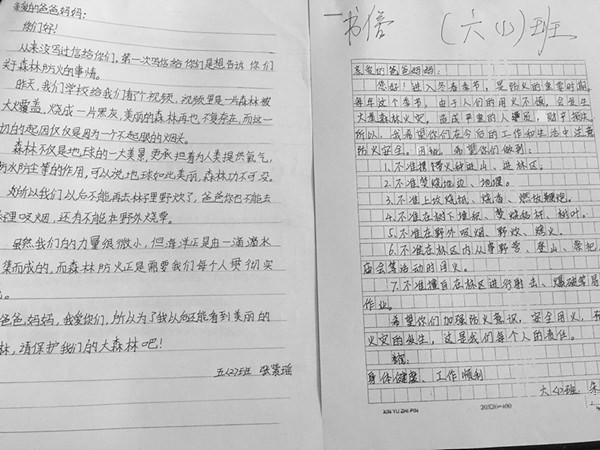 亲爱的爸爸妈妈:
你们好!
从来没写过信给你们,第一次写信给你们是想告诉你们
关于森林防火的事情。
昨天,我们学校给我们看了个视频,视频里是一片森林被
大火覆盖,烧成一片黑灰,美丽的森林再也不复存在,而这一
切的起因仅仅是因为一个不起眼的烟头。
森林不仅是地球的一大美景,更承担着为人类提供氧气,
防水防尘等的作用,可以说,地球如此美丽,森林功不可没。
所以我们以后不能再去林子里野炊了,爸爸你也不能去
里吸烟,还有不能在野外烧荤。
虽然我们的力量很微小,但海洋正是由一滴滴水
集而成的,而森林防火正是需要我们每个人贯彻实
爸爸,妈妈,我爱你们,所以为了我以后还能看到美丽的
林,请保护我们的大森林吧!
五(2)班 张紫瑶
书信 (六(4)班)
亲爱的爸爸妈妈:
您好!进入冬春季节,是防火的重要时期,
每年这个季节,由于人们的用火不慎,会发生
大量森林火灾,造成严重的人员,财产损失。
所以,我希望你们在今后的工作和生活中注意
防火安全,因此,希望你们做到:
1.不准携带火种进山、进林区。
2.不准焚烧田边、地埂。
3.不准上坟烧纸、烧香、燃放鞭炮。
4.不准在树下堆积、焚烧秸秆、树叶。
5.不准在野外吸烟、野炊、烧火。
6.不准在林区内从事野营、登山、祭祀
庙会等活动时用火。
7.不准擅自在林区进行射击、爆破等易
作业。
希望你们加强防火意识,安全用火,
火灾的发生,这是我们每个人的责任。
祝:
身体健康、工作顺利
六(4)班 朱
XIN YU ZHI PIN
20X20=400